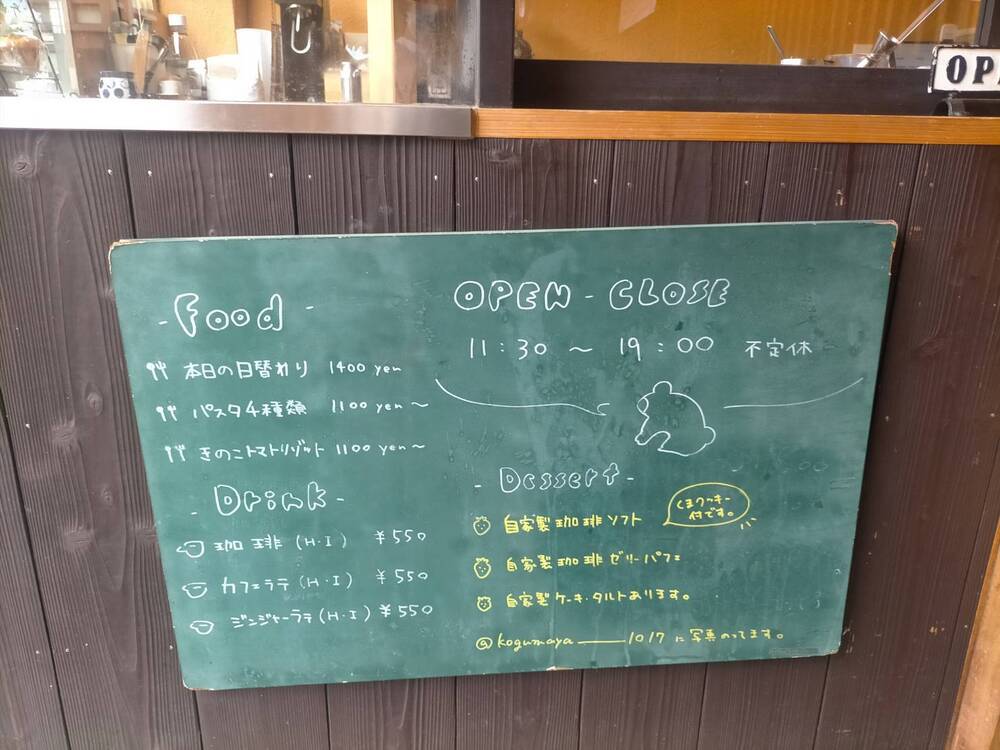 OPA
- Food -
本日の日替わり 1400 yen
パスタ4種類 1100 yen～
きのこトマトリゾット 1100 yen～
- Drink -
珈琲 (H・I) ¥550
カフェラテ (H・I) ¥550
ジンジャーラテ (H・I) ¥550
OPEN - CLOSE
11:30 ～ 19:00 不定休
- Dessert -
自家製珈琲ソフト
くまクッキー
付です。
自家製珈琲ゼリーパフェ
自家製ケーキ・タルトあります。
@kogumaya____1017 に写真のってます。